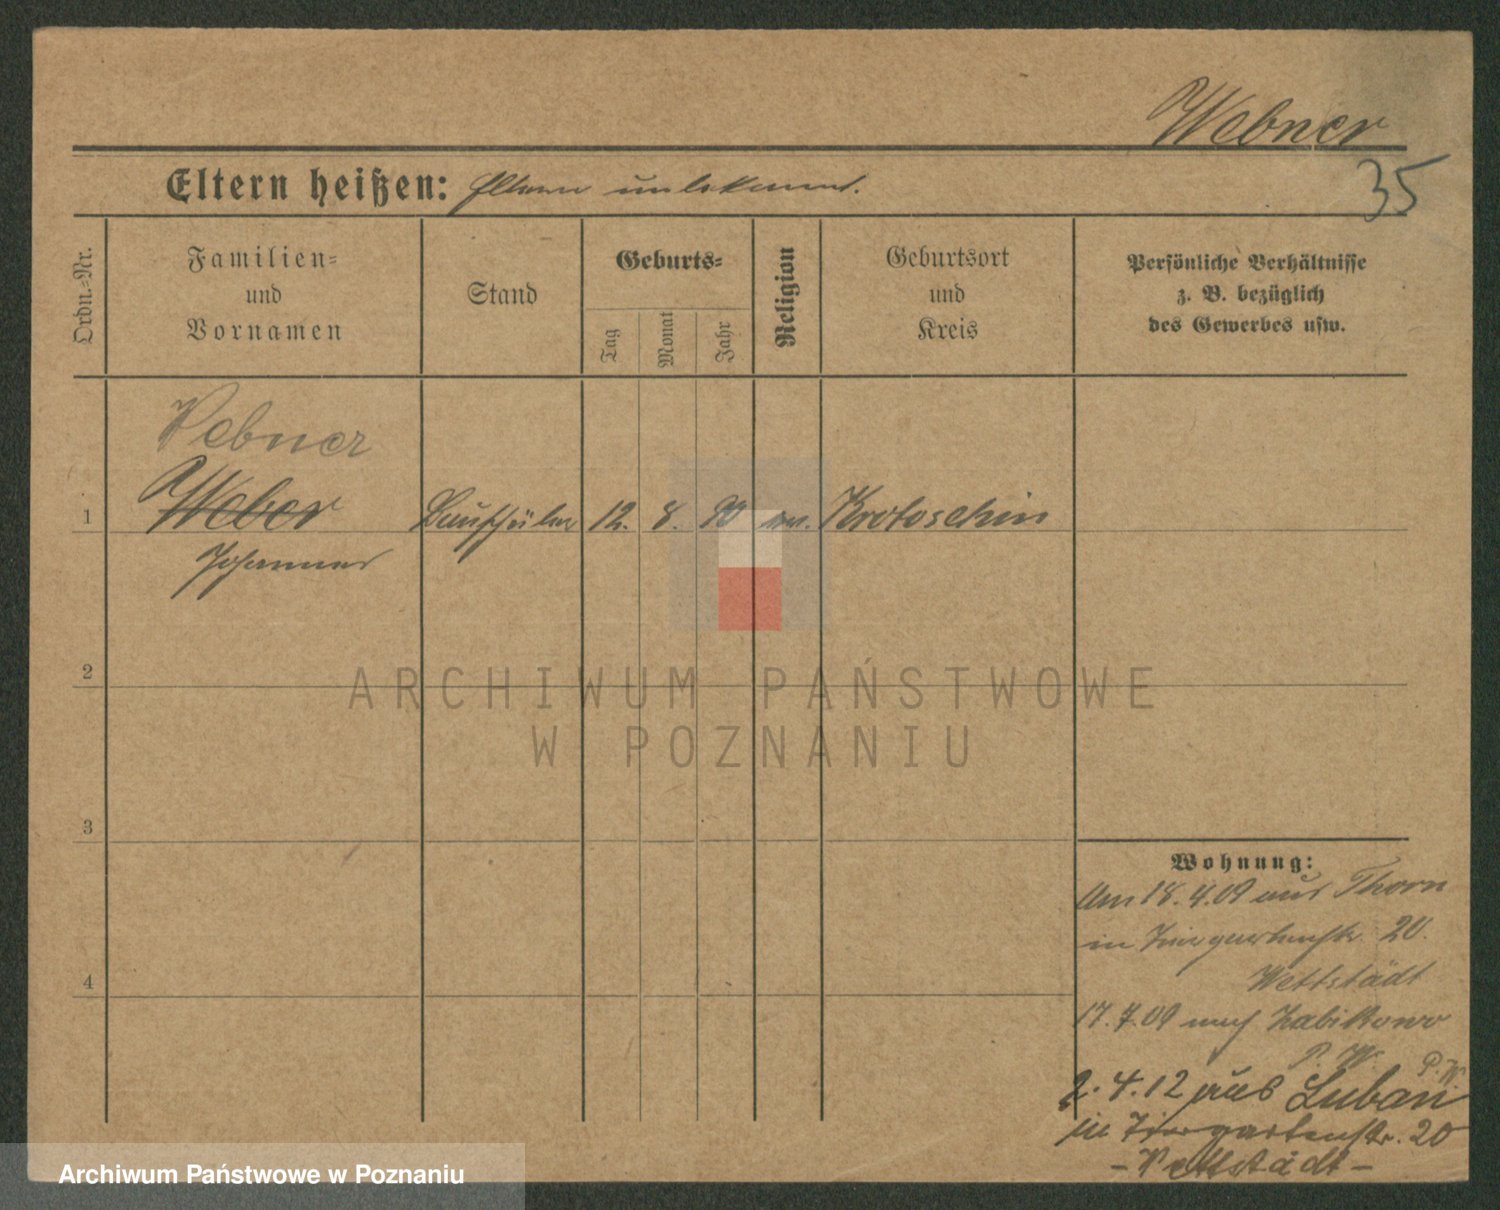 Webner
35
Eltern heißen: Eltern unbekannt.
Ordn.-Nr.
Familien-
und
Vornamen
Stand
Geburts-
Tag
Monat
Jahr
Religion
Geburtsort
und
Kreis
Persönliche Verhältnisse
z. B. bezüglich
des Gewerbes usw.
Webner
1 Weber Bauschüler 12. 8. 90 ev. Krotoschin
Johannes
2
3
4
Wohnung:
Am 18.4.09 aus Thorn
in Tiergartenstr. 20.
Wettstädt
17.7.09 nach Zabikowo
P. W. P. W.
2.4.12 aus Luban
in Tiergartenstr. 20
- Wettstädt -
ARCHIWUM PAŃSTWOWE
W POZNANIU
Archiwum Państwowe w Poznaniu